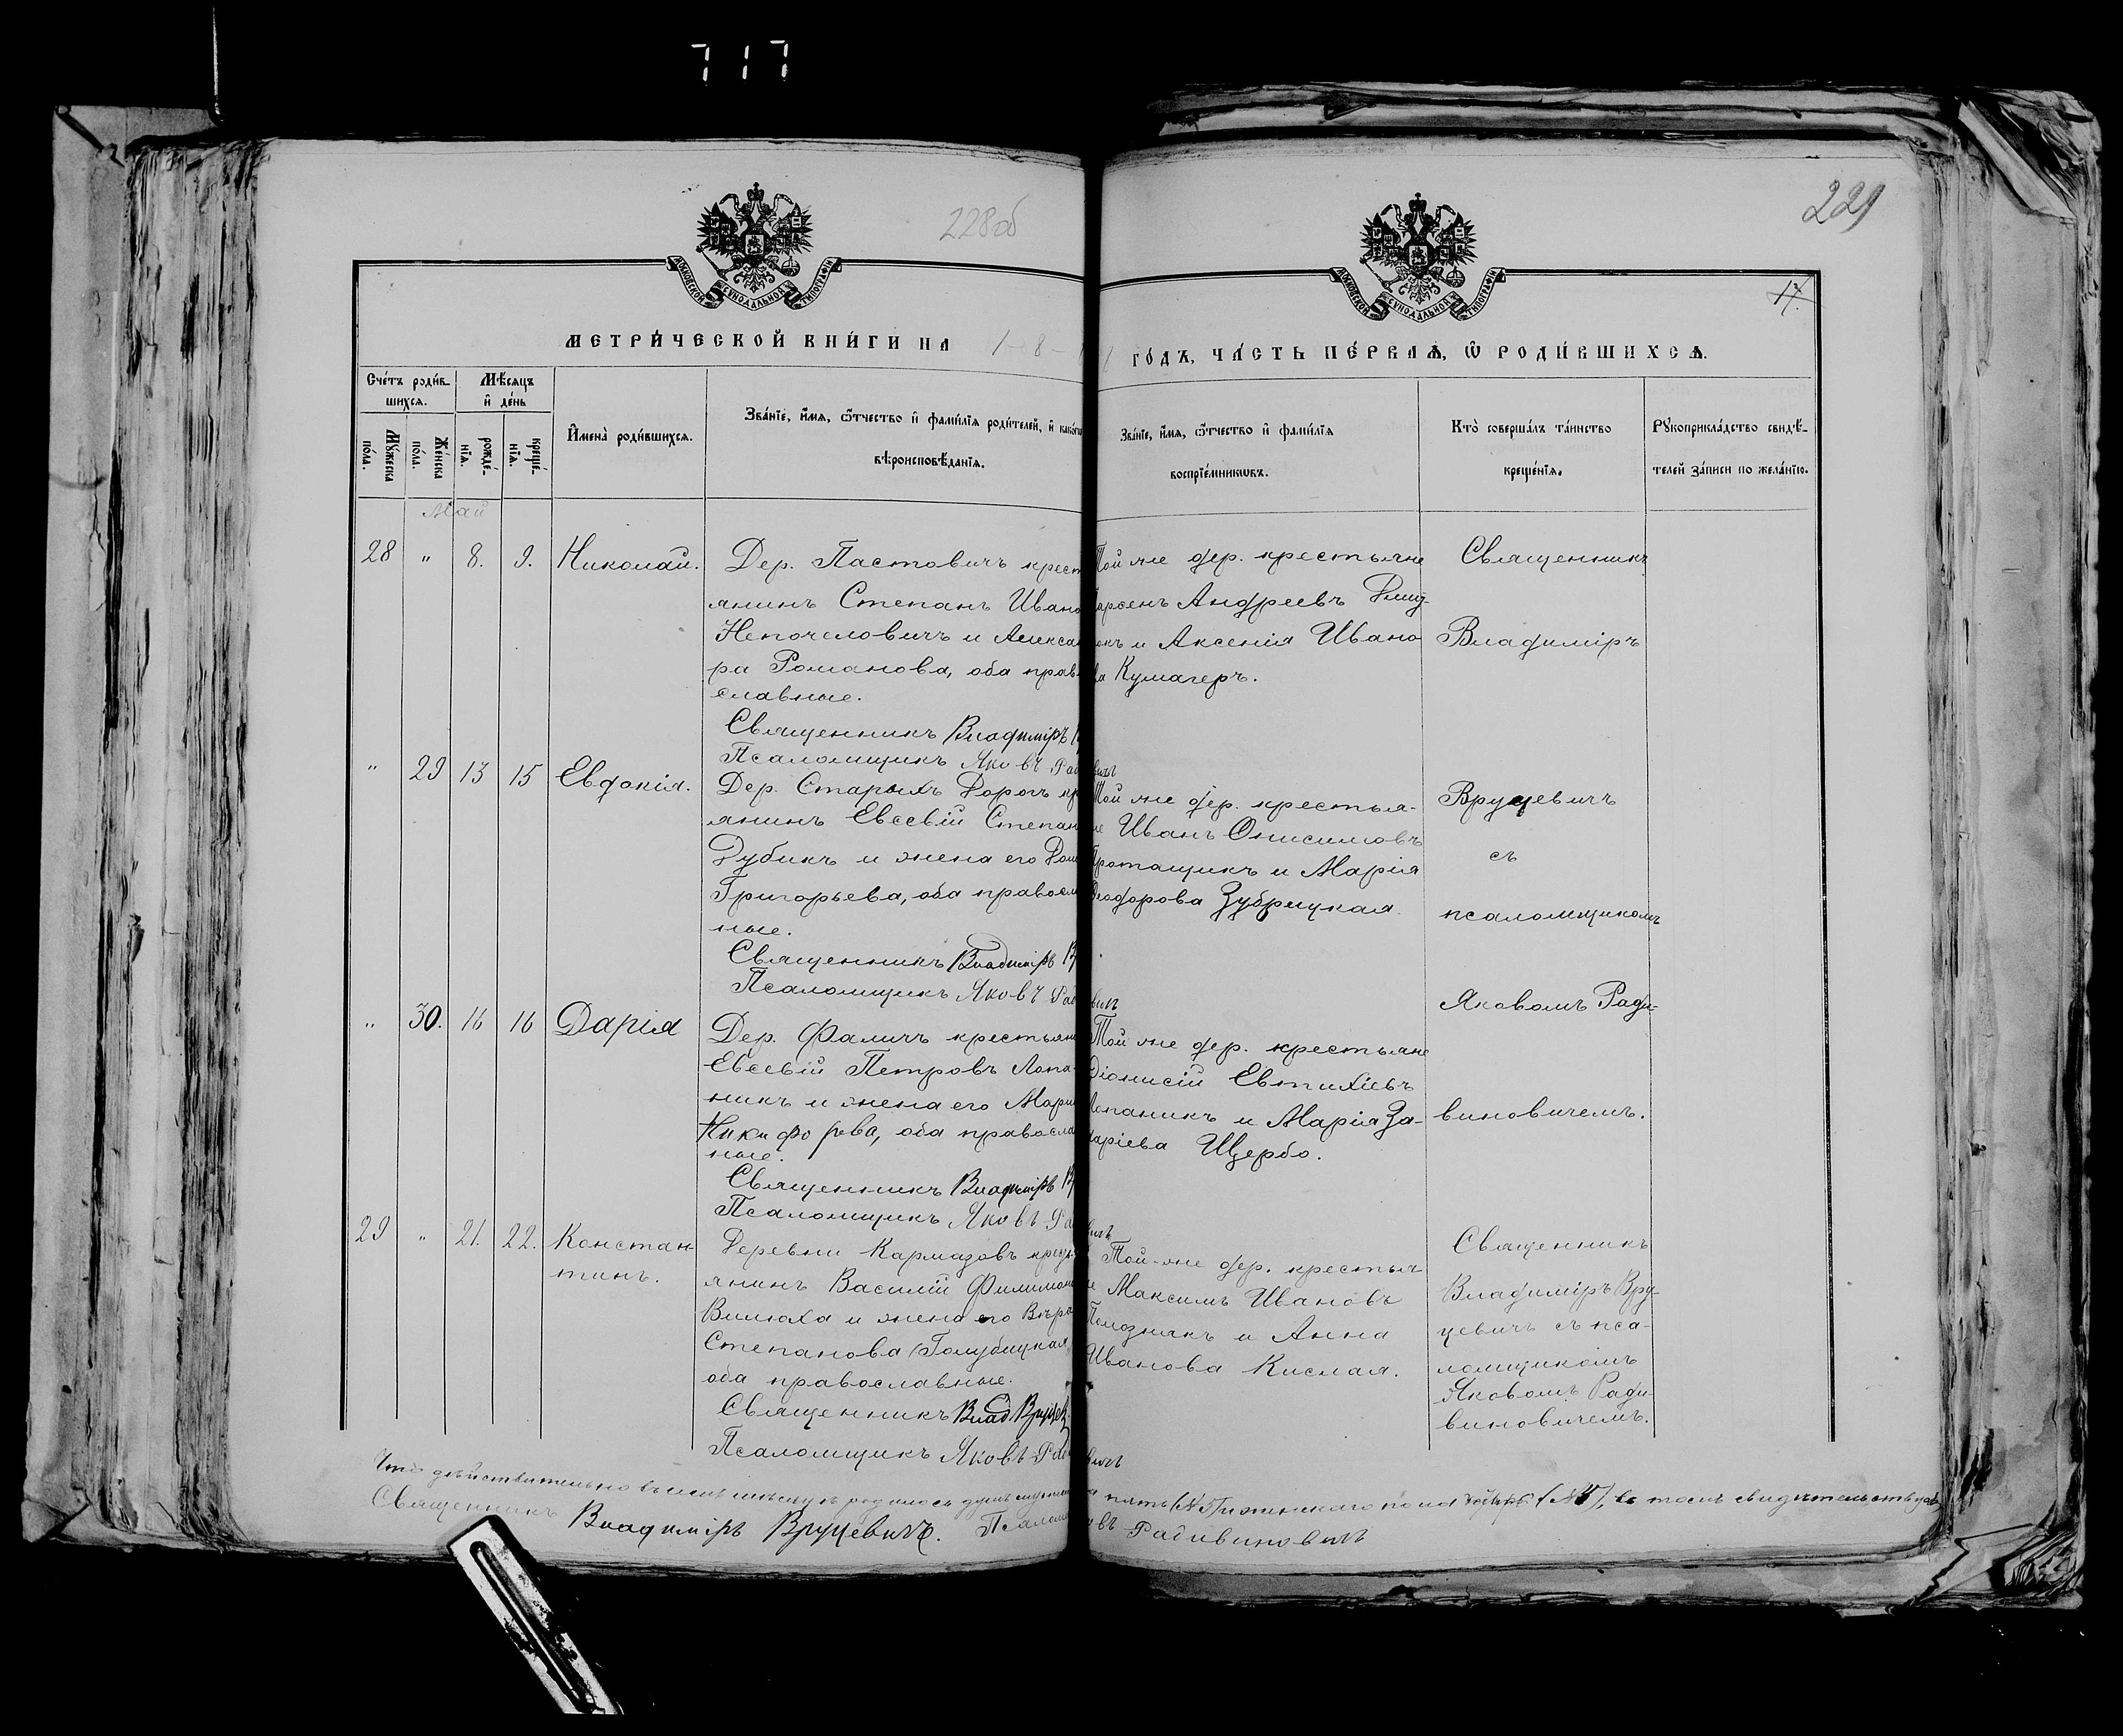 717
228об
229
МОСКОВСКОЙ СУНОДАЛЬНОЙ ТИПОГРАФІИ
МОСКОВСКОЙ СУНОДАЛЬНОЙ ТИПОГРАФІИ
17.
МЕТРИ́ЧЕСКОЙ КНИ́ГИ НА 1-8- ГО́ДЪ, ЧА́СТЬ ПЕ́РВАѦ, Ѡ҆ РОДИ́ВШИХСѦ.
Сче́тъ роди́в-
шихсѧ.
Му́жеска
по́ла.
Же́нска
по́ла.
Мѣ́сяцъ
и҆ де́нь
рожде́-
нїѧ.
креще́-
нїѧ.
И҆мена̀ роди́вшихсѧ.
Зва́нїе, и҆́мѧ, ѻ҆́тчество и҆ фами́лїѧ роди́телей, и҆ како́гѡ
вѣроисповѣ́данїѧ.
Зва́нїе, и҆́мѧ, ѻ҆́тчество и҆ фами́лїѧ
воспрїе́мникѡвъ.
Кто̀ соверша́лъ та́инство
креще́нїѧ.
Рꙋкоприкла́дство свидѣ́-
телей за́писи по жела́нїю.
Май
28 „ 8. 9. Николай.
Дер. Пастовичъ крест
янинъ Степанъ Ивано
Непочеловичъ и Алексан
ра Романова, оба прав
славные.
Священникъ Владиміръ
Псаломщикъ Яковъ Рад
Той же дер. крестьяне
Андреевъ
и Аксенія Ивано
ва Кумагеръ.
Священникъ
Владиміръ
„ 29 13 15 Евдокія.
Дер. Старыхъ Дорогъ кр
янинъ Евсевій Степан
Дубикъ и жена его Дом
Григорьева, оба правосл
ные.
Священникъ Владиміръ В
Псаломщикъ Яковъ Рад
вичъ
Той же дер. крестья-
не Иванъ Онисимовъ
Протащикъ и Марія
Ѳеодорова Зубрицкая.
Вруцевичъ
съ
псаломщикомъ
„ 30. 16 16 Дарія
Дер. Фаличъ крестьяни
Евсевій Петровъ Лопа-
никъ и жена его Марі
Никифорова, оба правосла
ные.
Священникъ Владиміръ В
Псаломщикъ Яковъ Ра
вичъ
Той же дер. крестьяне
Діонисій Евтихіевъ
Лопаникъ и Марія За-
харіева Щербо.
Яковомъ Ради-
виновичемъ.
29 „ 21. 22. Констан-
тинъ.
Деревни Кармазовъ крест
янинъ Василій Филимон
Вилюха и жена его Вѣра
Степанова (Голубицкая
оба православные.
Священникъ Влад Вруцев
Псаломщикъ Яковъ Рад
вичъ
Той-же дер. крестья
не Максимъ Ивановъ
и Анна
Иванова Кислая.
Священникъ
Владиміръ Вру-
цевичъ съ пса-
ломщикомъ
Яковомъ Ради-
виновичемъ.
Что дѣйствительно въ семъ мѣсяцѣ родилось душъ мужеск
а пять (№ 5) и женскаго пола въ томъ свидѣтельствуемъ
Священникъ Владиміръ Вруцевичъ. Псалом
въ Радивиновичъ